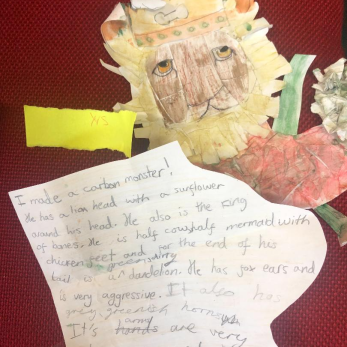 I made a carbon monster!
He has a lion head with a sunflower
around his head. He also is the king
of bones. He is half cow half mermaid with
chicken feet and for the end of his
tail is a dandelion. He has fox ears and
is very aggressive. It also has
grey greenish horns
It's hands army are very